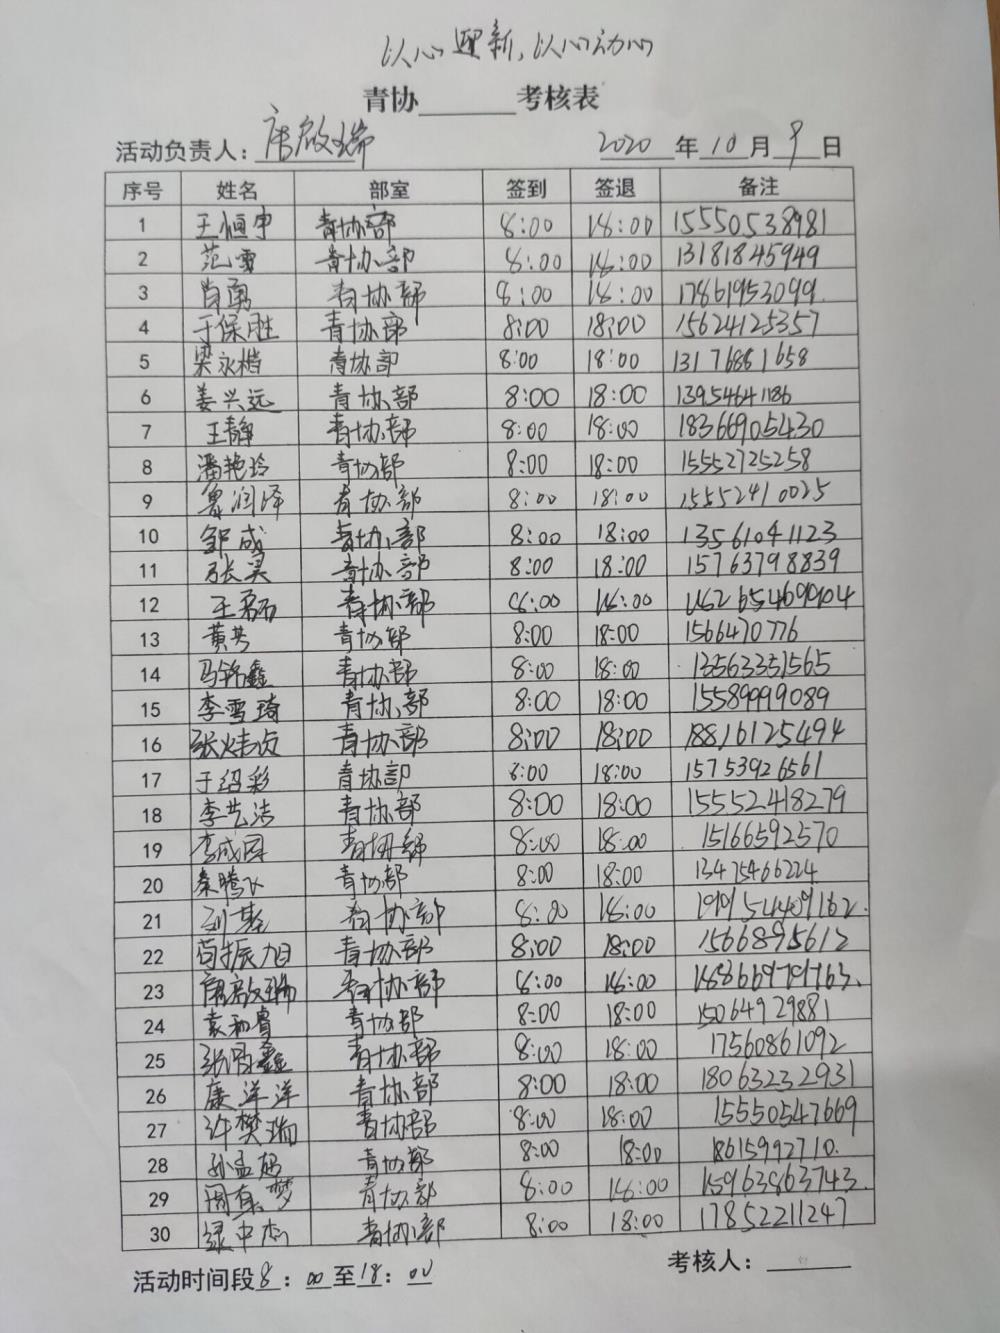 以心迎新,以心动心
青协______考核表
活动负责人:唐啟瑞 2020年10月9日
序号 姓名 部室 签到 签退 备注
1 王恒宇 青协部 8:00 18:00 15550538981
2 范雪 青协部 8:00 18:00 13181845949
3 肖勇 青协部 8:00 18:00 17861953099.
4 于保胜 青协部 8:00 18:00 15624125357
5 梁永楷 青协部 8:00 18:00 13176881658
6 姜兴远 青协部 8:00 18:00 13954641186
7 王静 青协部 8:00 18:00 18366905430
8 潘艳玲 青协部 8:00 18:00 15552725258
9 鲁润泽 青协部 8:00 18:00 15552410025
10 邹成 青协部 8:00 18:00 13561041123
11 张昊 青协部 8:00 18:00 15763798839
12 青协部 8:00 18:00
13 青协部 8:00 18:00 1566470776
14 马锦鑫 青协部 8:00 18:00 13563351565
15 李雪琦 青协部 8:00 18:00 15589999089
16 青协部 8:00 18:00 18816125494
17 于绍彩 青协部 8:00 18:00 15753926561
18 李艺洁 青协部 8:00 18:00 15552418279
19 青协部 8:00 18:00 15166592570
20 秦腾飞 青协部 8:00 18:00 13475466224
21 刘基 青协部 8:00 18:00
22 苟振旭 青协部 8:00 18:00 1566895612
23 唐啟瑞 青协部 8:00 18:00
24 袁和睿 青协部 8:00 18:00 15064929881
25 青协部 8:00 18:00 17560861092
26 康洋洋 青协部 8:00 18:00 18063232931
27 许樊瑞 青协部 8:00 18:00 15550547669
28 青协部 8:00 18:00 18615992710.
29 青协部 8:00 18:00 15963863743.
30 青协部 8:00 18:00 17852211247
活动时间段8:00至18:00 考核人:______